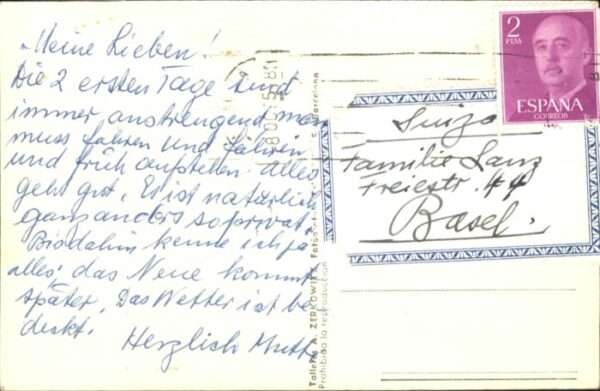 Meine Lieben!
Die 2 ersten Tage sind
immer anstrengend man
muss fahren und fahren
und früh aufstehen. Alles
geht gut. Es ist natürlich
ganz anders so privat.
Bis dahin kenne ich ja
alles, das Neue kommt
später. Das Wetter ist be
deckt.
Herzlich Mutti
2
PTAS
ESPAÑA
CORREOS
Suiza
Familie Lanz
Freiestr. 44
Basel.
Talleres A. ZERKOWITZ, Barcelona
Prohibida la reproducción